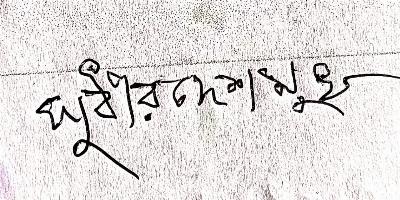 সুধীর দেশমুখ